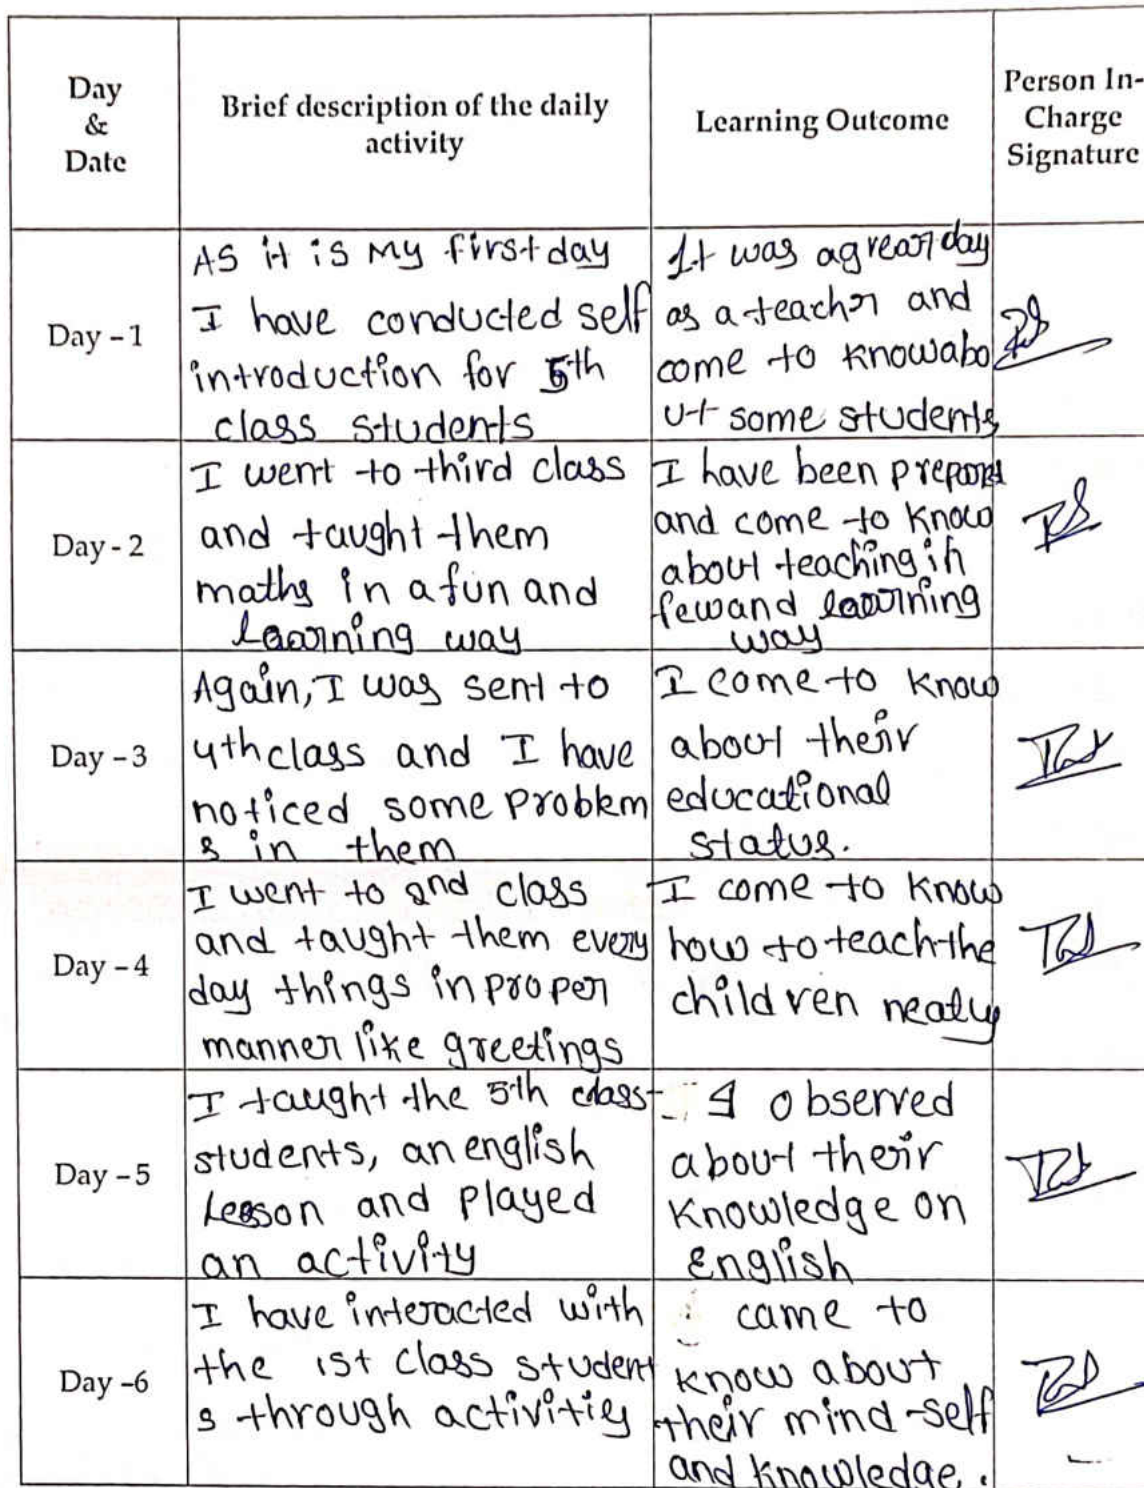 Day
&
Date
Brief description of the daily
activity
Learning Outcome
Person In-
Charge
Signature
Day - 1
As it is my first day
I have conducted self
introduction for 5th
class students
It was a great day
as a teacher and
come to know abo
ut some students
Day - 2
I went to third class
and taught them
maths in a fun and
learning way
I have been prepared
and come to know
about teaching in
few and learning
way
Day - 3
Again, I was sent to
4th class and I have
noticed some problem
s in them
I come to know
about their
educational
status.
Day - 4
I went to 2nd class
and taught them every
day things in proper
manner like greetings
I come to know
how to teach the
children neatly
Day - 5
I taught the 5th class
students, an english
lesson and played
an activity
I observed
about their
knowledge on
English
Day -6
I have interacted with
the 1st class student
s through activities
came to
know about
their mind-self
and knowledge.